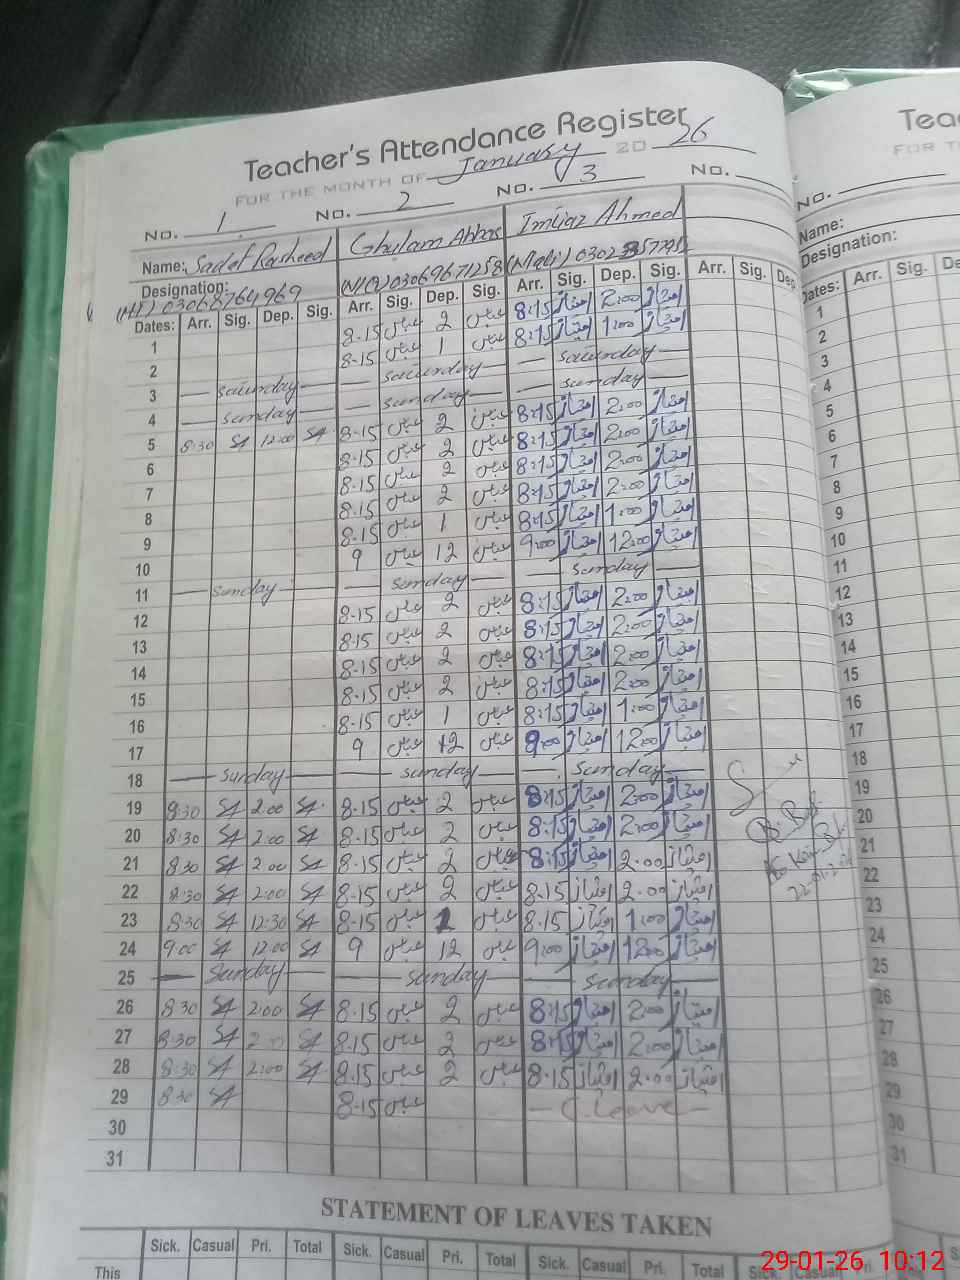 Teacher's Attendance Register
FOR THE MONTH OF January 20 26
No. 1. No. 2 No. 3 No.
Name: Sadef Rasheed Ghulam Abbas Imtiaz Ahmed
Designation: 03068764969 03069671258
Dates: Arr. Sig. Dep. Sig. Arr. Sig. Dep. Sig. Arr. Sig. Dep. Sig. Arr. Sig. Dep
1 8-15 عباس 2 عباس 8:15 امتیاز 2:00 امتیاز
2 8-15 عباس 1 عباس 8:15 امتیاز 1:00 امتیاز
3 — Saturday — — Saturday — — Saturday —
4 — Sunday — — Sunday — — Sunday —
5 8:30 SA 12:00 SA 8-15 عباس 2 عباس 8:15 امتیاز 2:00 امتیاز
6 8-15 عباس 2 عباس 8:15 امتیاز 2:00 امتیاز
7 8-15 عباس 2 عباس 8:15 امتیاز 2:00 امتیاز
8 8-15 عباس 2 عباس 8:15 امتیاز 2:00 امتیاز
9 8-15 عباس 1 عباس 8:15 امتیاز 1:00 امتیاز
10 9 عباس 12 عباس 9:00 امتیاز 12:00 امتیاز
11 — Sunday — — Sunday — — Sunday —
12 8-15 عباس 2 عباس 8:15 امتیاز 2:00 امتیاز
13 8-15 عباس 2 عباس 8:15 امتیاز 2:00 امتیاز
14 8-15 عباس 2 عباس 8:15 امتیاز 2:00 امتیاز
15 8-15 عباس 2 عباس 8:15 امتیاز 2:00 امتیاز
16 8-15 عباس 1 عباس 8:15 امتیاز 1:00 امتیاز
17 9 عباس 12 عباس 9:00 امتیاز 12:00 امتیاز
18 — Sunday — — Sunday — — Sunday —
19 8:30 SA 2:00 SA 8-15 عباس 2 عباس 8:15 امتیاز 2:00 امتیاز
20 8:30 SA 2:00 SA 8-15 عباس 2 عباس 8:15 امتیاز 2:00 امتیاز
21 8:30 SA 2:00 SA 8-15 عباس 2 عباس 8:15 امتیاز 2:00 امتیاز
22 8:30 SA 2:00 SA 8-15 عباس 2 عباس 8:15 امتیاز 2:00 امتیاز
23 8:30 SA 12:30 SA 8-15 عباس 1 عباس 8:15 امتیاز 1:00 امتیاز
24 9:00 SA 12:00 SA 9 عباس 12 عباس 9:00 امتیاز 12:00 امتیاز
25 — Sunday — — Sunday — — Sunday —
26 8:30 SA 2:00 SA 8-15 عباس 2 عباس 8:15 امتیاز 2:00 امتیاز
27 8:30 SA 2:00 SA 8-15 عباس 2 عباس 8:15 امتیاز 2:00 امتیاز
28 8:30 SA 2:00 SA 8-15 عباس 2 عباس 8:15 امتیاز 2:00 امتیاز
29 8:30 SA 8-15 عباس — C. Leave —
30
31
STATEMENT OF LEAVES TAKEN
Sick. Casual Pri. Total Sick. Casual Pri. Total Sick. Casual Pri. Total Sick. Casual Pri.
This
No.
Name:
Designation:
Dates: Arr. Sig.
1
2
3
4
5
6
7
8
9
10
11
12
13
14
15
16
17
18
19
20
21
22
23
24
25
26
27
28
29
30
31
29-01-26 10:12